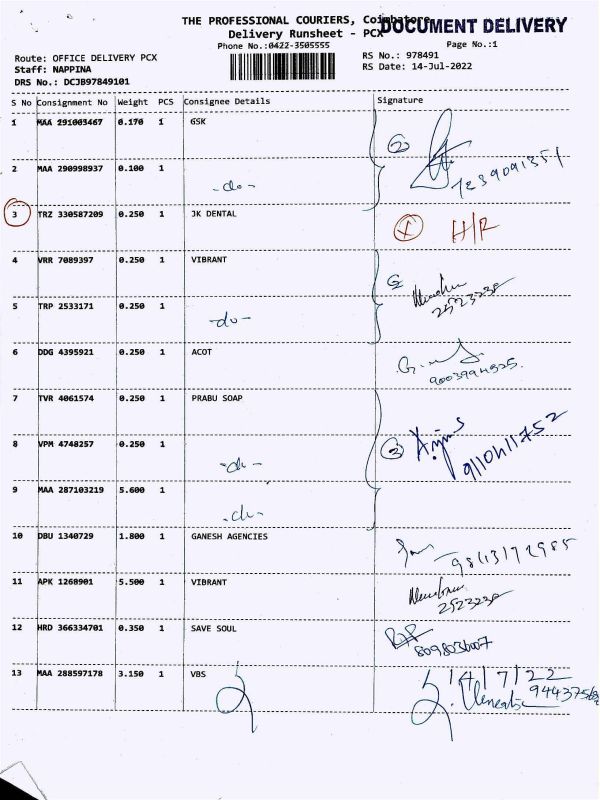 THE PROFESSIONAL COURIERS, Coimbatore
DOCUMENT DELIVERY
Delivery Runsheet - PCX
Phone No.:0422-3505555
Page No.:1
Route: OFFICE DELIVERY PCX
RS No.: 978491
Staff: NAPPINA
RS Date: 14-Jul-2022
DRS No.: DCJB97849101
S No Consignment No Weight PCS Consignee Details Signature
1 MAA 291003467 0.170 1 GSK
2 MAA 290998937 0.100 1 -do- 7239091351
3 TRZ 330587209 0.250 1 JK DENTAL X H/R
4 VRR 7089397 0.250 1 VIBRANT 2
2523230
5 TRP 2533171 0.250 1 -do-
6 DDG 4395921 0.250 1 ACOT
9003994525
7 TVR 4061574 0.250 1 PRABU SOAP
8 VPM 4748257 0.250 1 -do- 3
9 MAA 287103219 5.600 1 -do-
10 DBU 1340729 1.800 1 GANESH AGENCIES
9843172985
11 APK 1268901 5.500 1 VIBRANT
2523230
12 HRD 366334701 0.350 1 SAVE SOUL
13 MAA 288597178 3.150 1 VBS 14/7/22